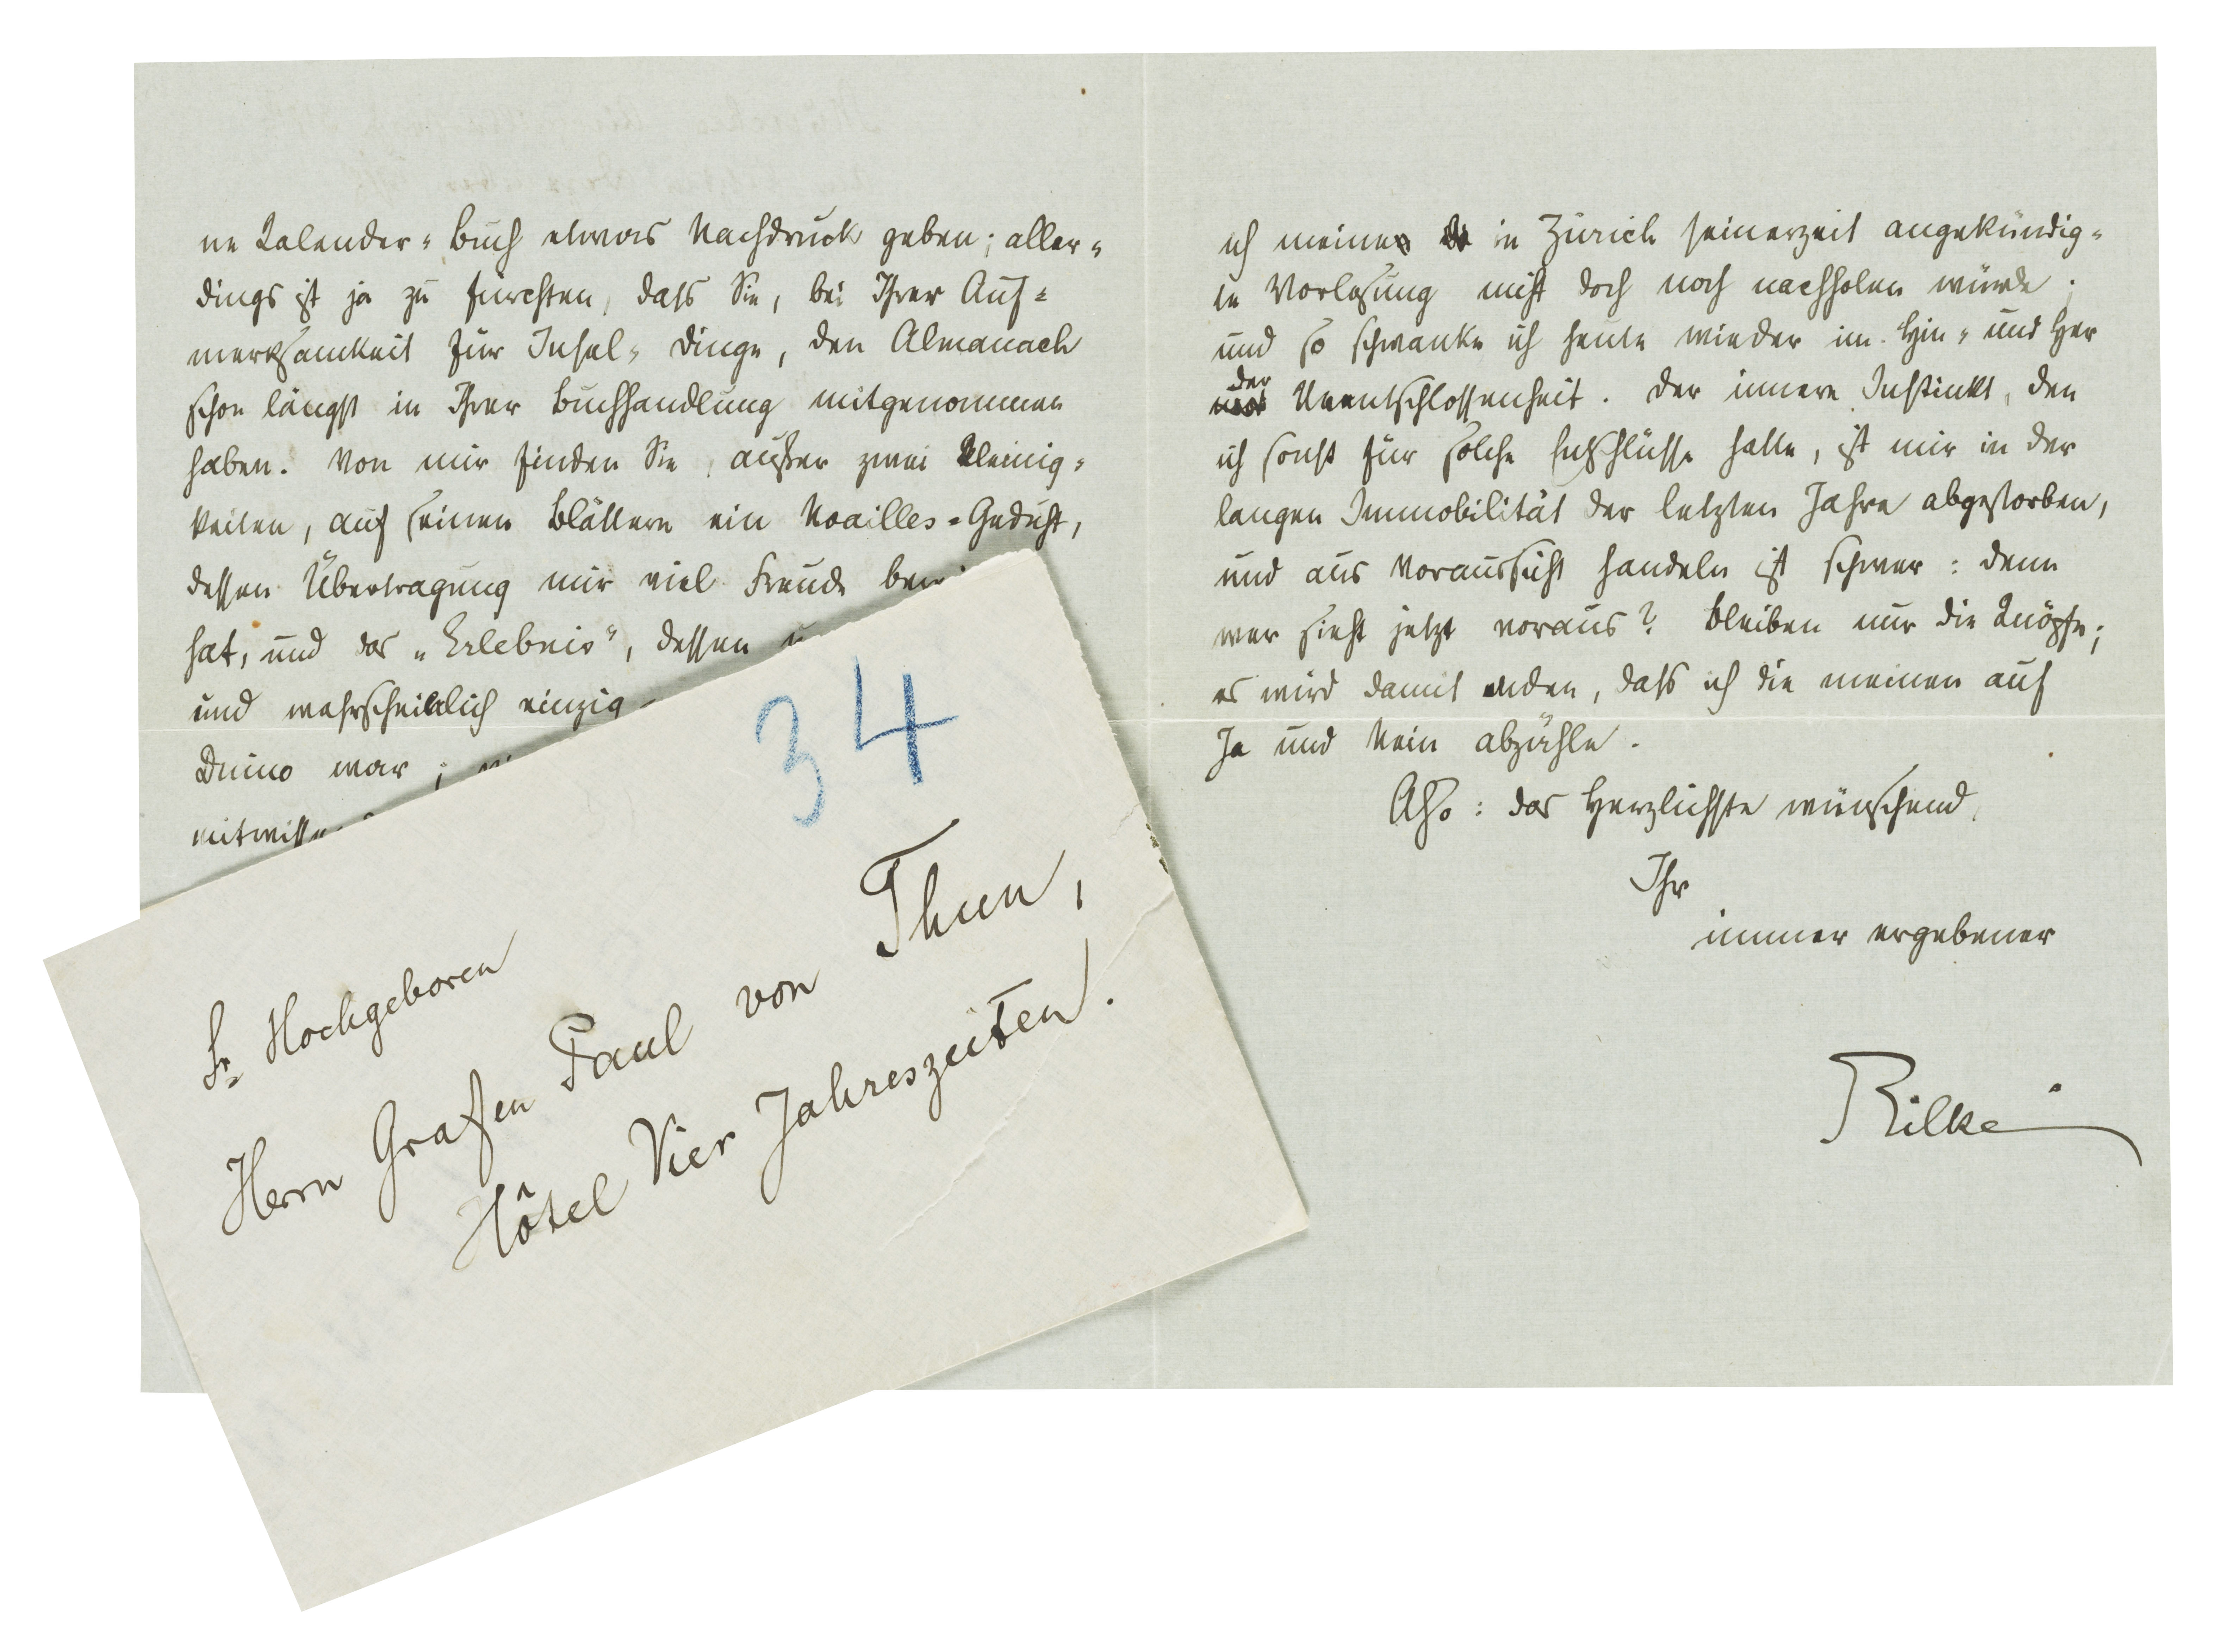 ne Kalender-Buch etwas Nachdruck geben; aller-
dings ist ja zu fürchten, dass Sie, bei Ihrer Auf-
merksamkeit für Insel-Dinge, den Almanach
schon längst in Ihrer Buchhandlung mitgenommen
haben. Von mir finden Sie, außer zwei Kleinig-
keiten, auf seinen Blättern ein Noailles-Gedicht,
dessen Übertragung mir viel Freude
hat, und das „Erlebnis“, dessen
und wahrscheinlich einzig
Duino war;
ich meine in Zürich seinerzeit angekündig-
te Vorlesung nicht doch noch nachholen würde;
und so schwanke ich heute wieder im Hin- und Her
der
Unentschlossenheit. Der innere Instinkt, den
ich sonst für solche Entschlüsse hatte, ist mir in der
langen Immobilität der letzten Jahre abgestorben,
und aus Voraussicht handeln ist schwer: denn
wer sieht jetzt voraus? Bleiben nur die Knöpfe;
es wird damit enden, dass ich die meinen auf
Ja und Nein abzähle.
Also: das Herzlichste wünschend,
Ihr
immer ergebener
Rilke
34
Sr Hochgeboren
Herrn Grafen Paul von Thun,
Hôtel Vier Jahreszeiten.